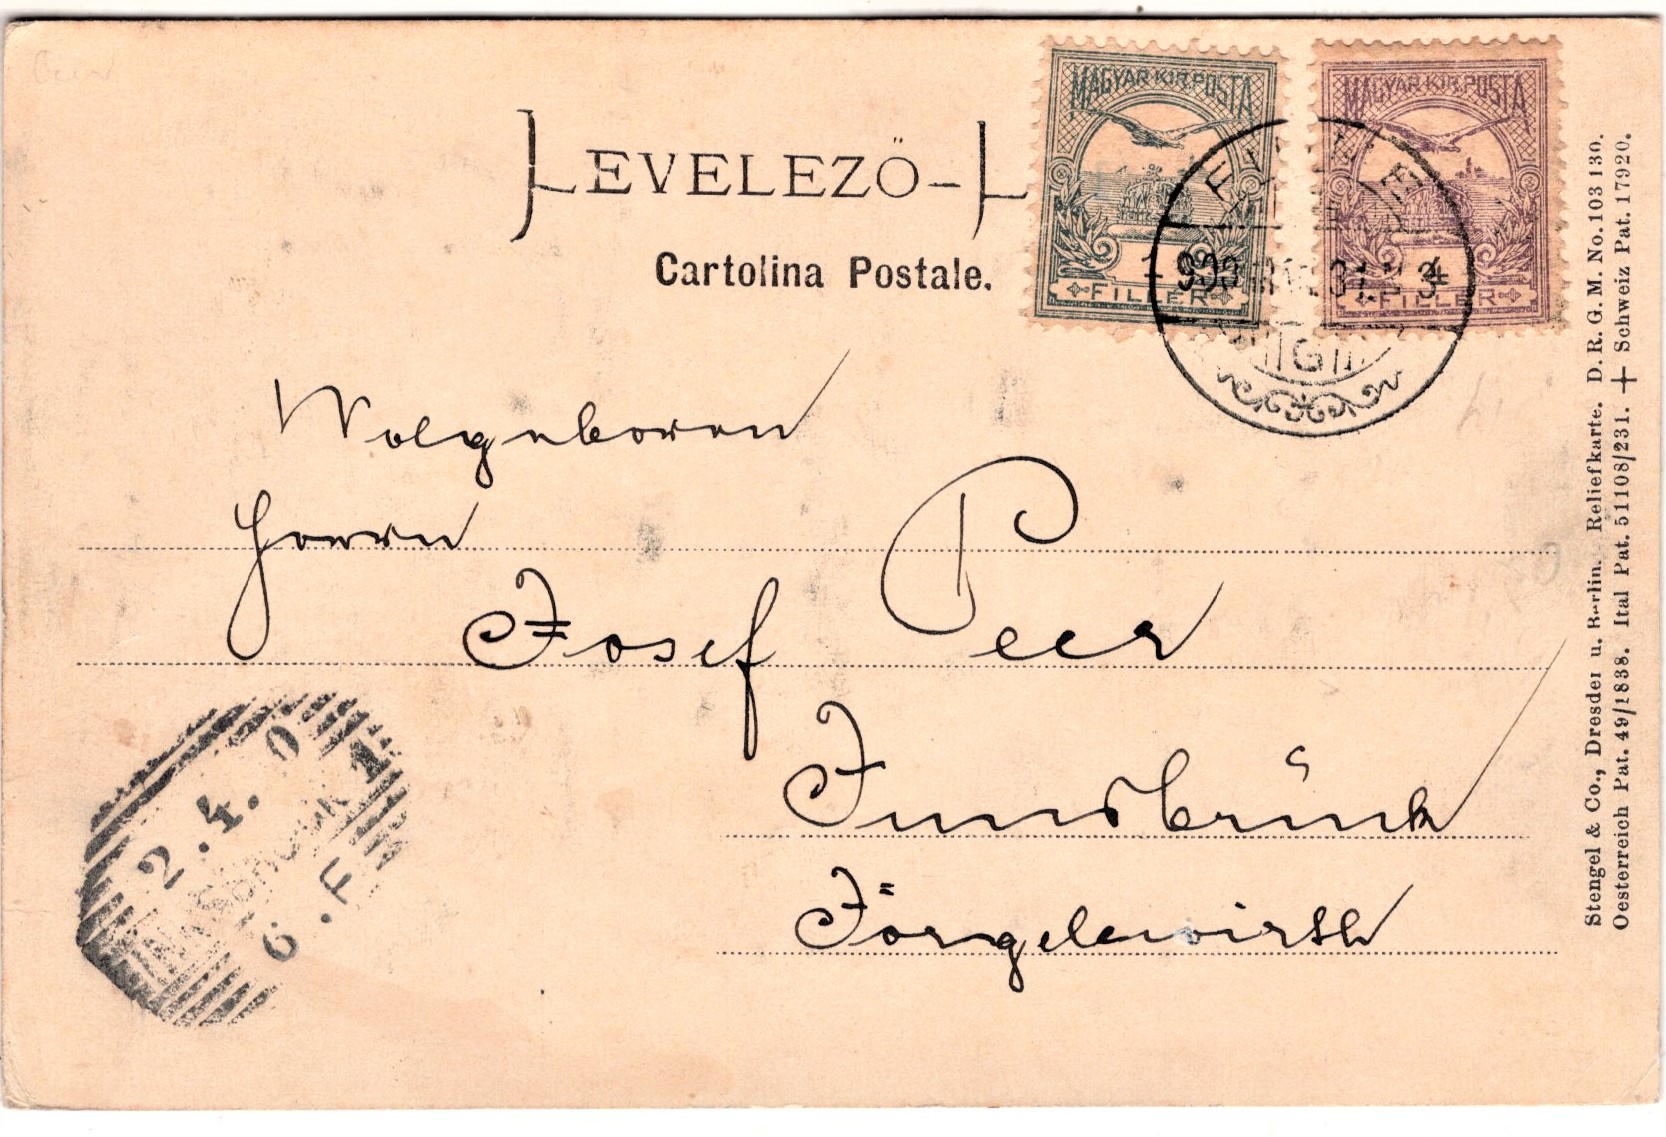 LEVELEZŐ-L
Cartolina Postale.
MAGYAR KIR. POSTA
FILLER
MAGYAR KIR. POSTA
FILLER
Wolgeboren
Herrn
Josef Peer
Innsbrück
Jörgelewirth
2.4.0
INNSBRUCK 1
6.F
Stengel & Co., Dresden u. Berlin. Reliefkarte. D. R. G. M. No. 103 130.
Oesterreich Pat. 49/1838. Ital Pat. 51108/231. + Schweiz Pat. 17920.